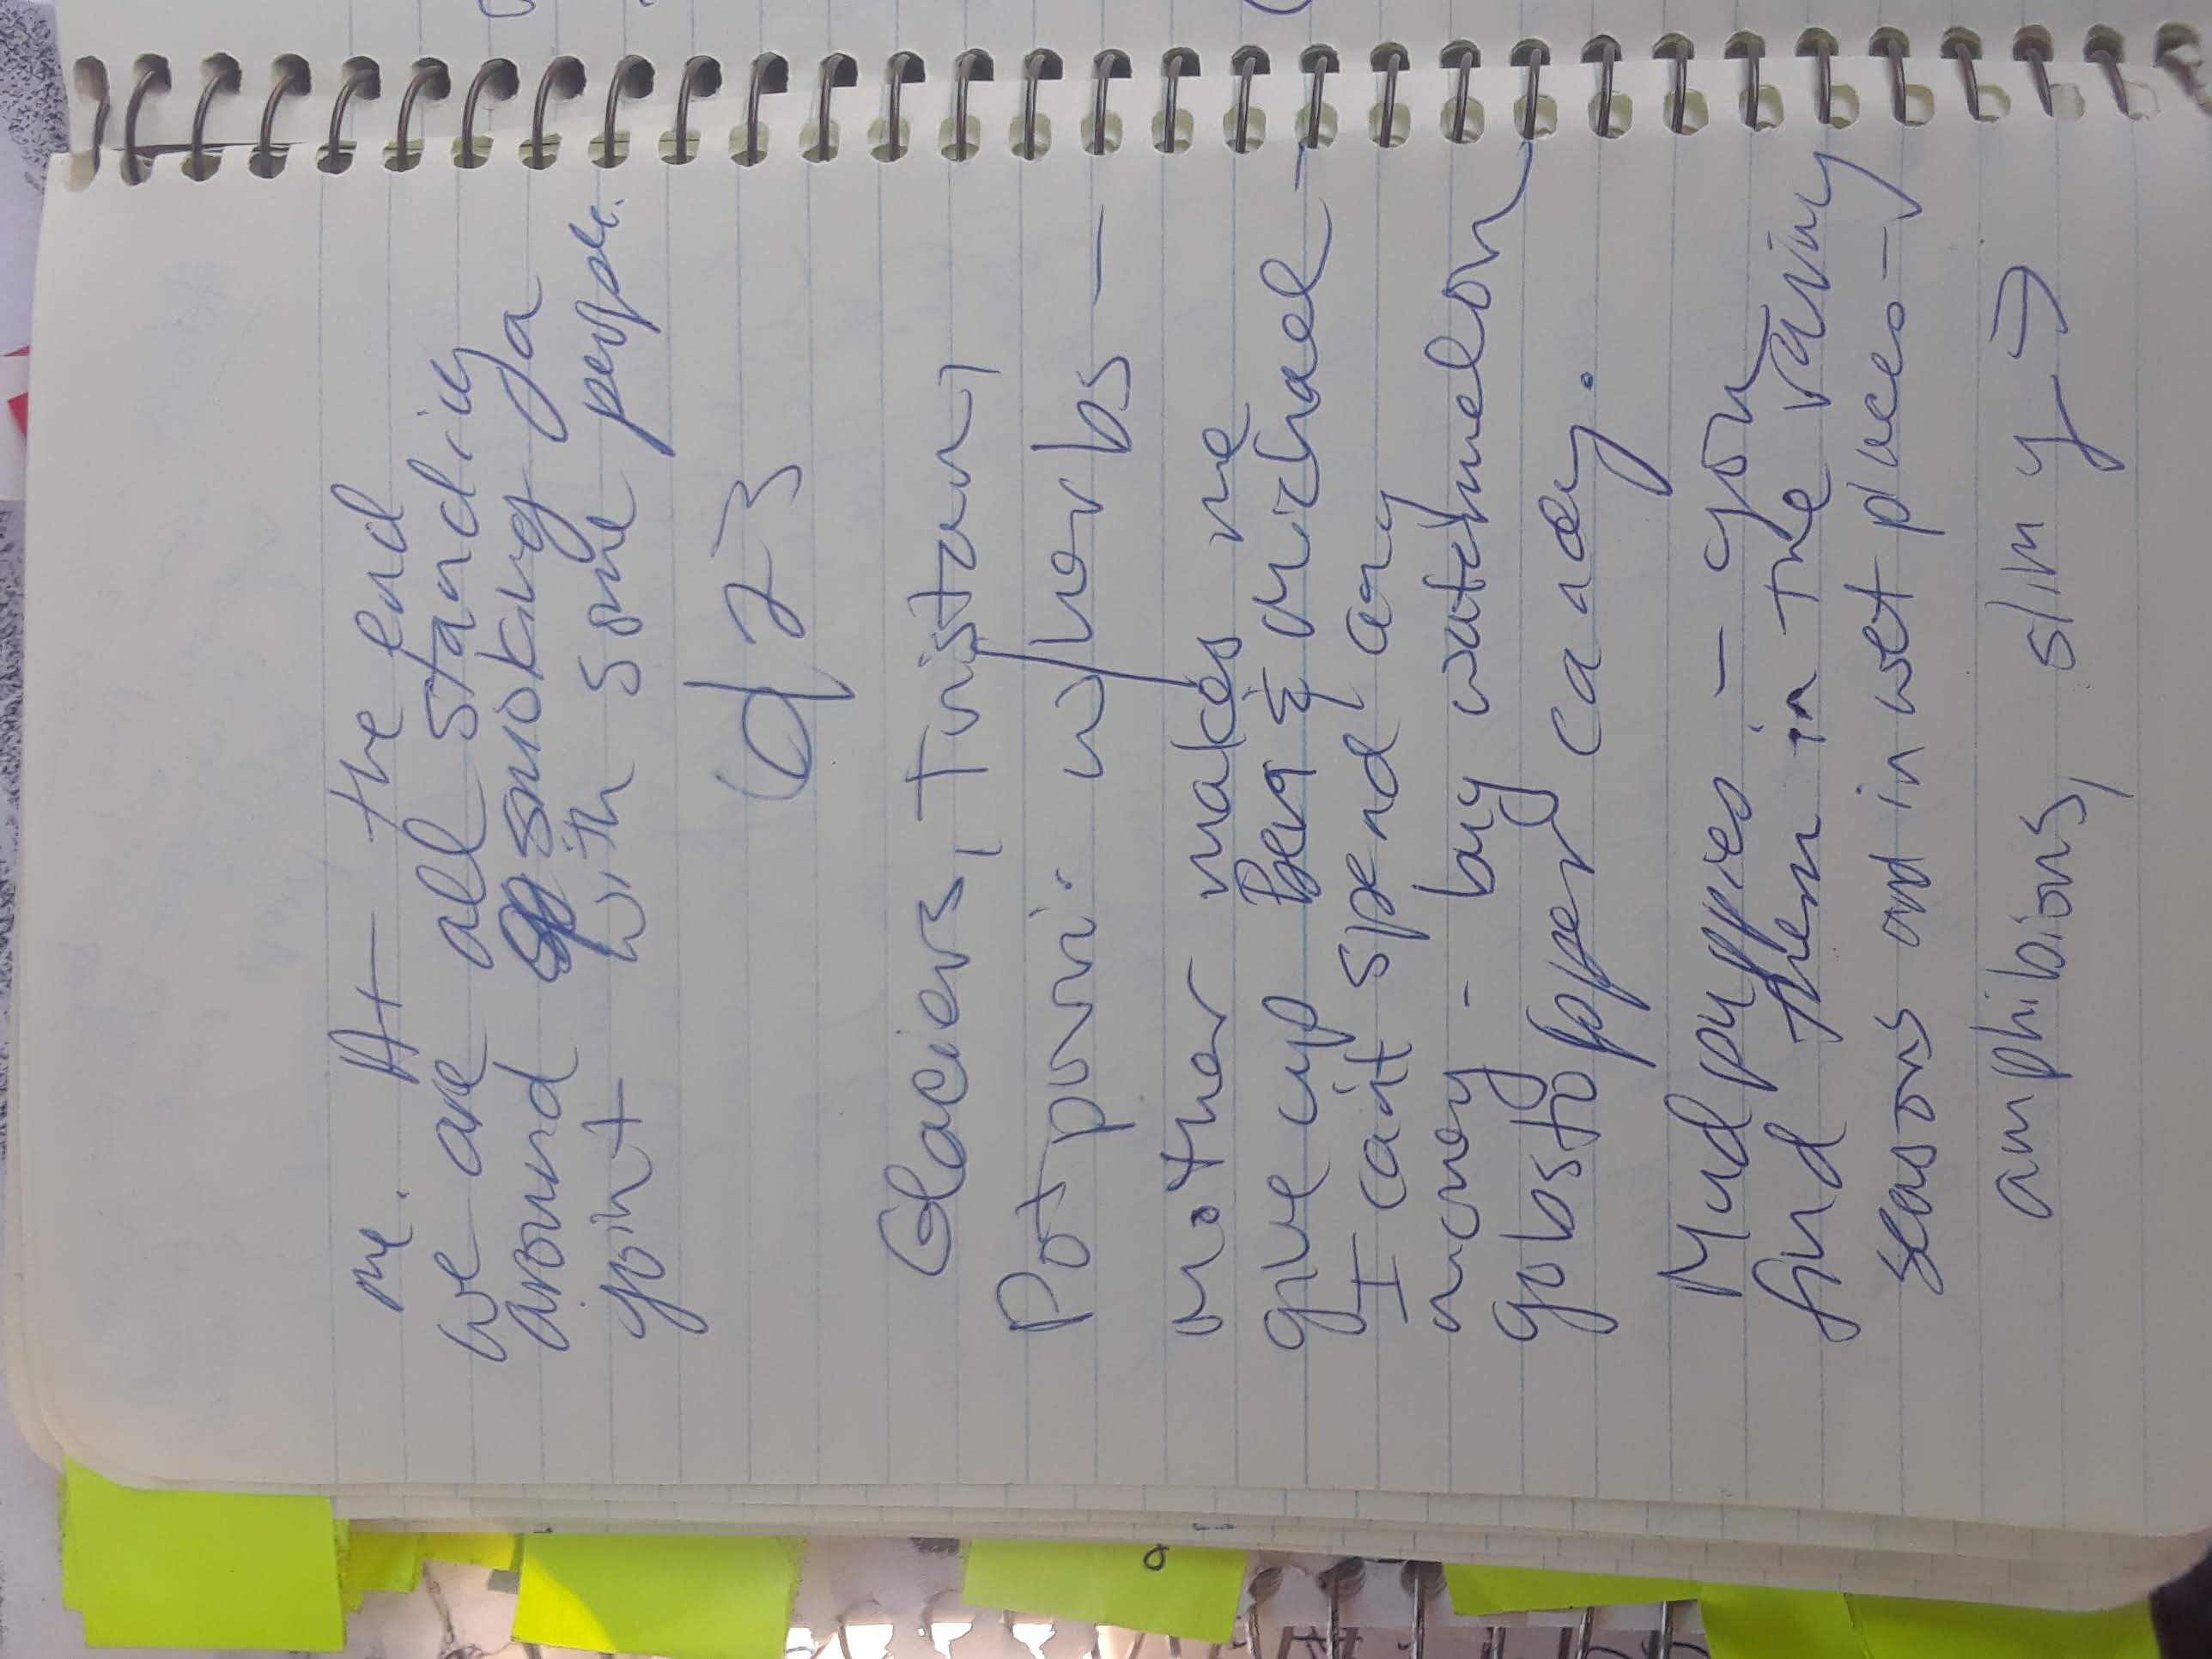 me. At the end
we are all standing
around smoking a
joint with some people.
Glaciers, Tristan,
Potpurri. w/herbs —
Mother makes me
give up Ben & Michael —
I can't spend any
money - buy watchmelon
gobstopper candy.
Mud puppies — you
find them in the rainy
seasons and in wet places —
amphibions, slimy →